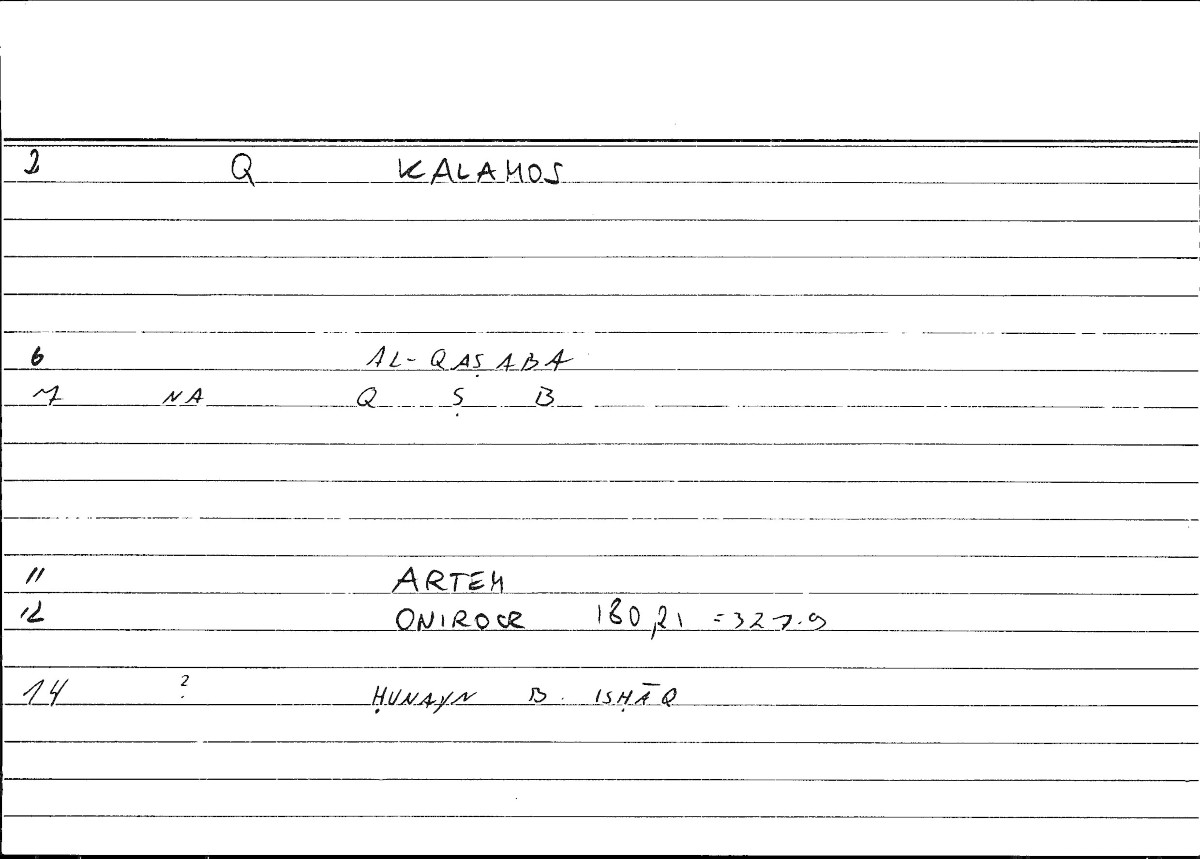 2 Q KALAMOS
6 AL-QAṢABA
7 NA Q Ṣ B
11 ARTEM
12 ONIROCR 180,21 = 327.9
14 ? ḤUNAYN B. ISḤĀQ